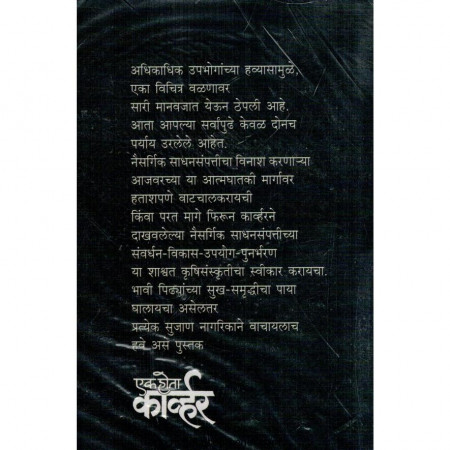 अधिकाधिक उपभोगांच्या हव्यासामुळे,
एका विचित्र वळणावर
सारी मानवजात येऊन ठेपली आहे.
आता आपल्या सर्वांपुढे केवळ दोनच
पर्याय उरलेले आहेत.
नैसर्गिक साधनसंपत्तीचा विनाश करणाऱ्या
आजवरच्या या आत्मघातकी मार्गावर
हताशपणे वाटचालकरायची
किंवा परत मागे फिरून कार्व्हरने
दाखवलेल्या नैसर्गिक साधनसंपत्तीच्या
संवर्धन-विकास-उपयोग-पुनर्भरण
या शाश्वत कृषिसंस्कृतीचा स्वीकार करायचा.
भावी पिढ्यांच्या सुख-समृद्धीचा पाया
घालायचा असेलतर
प्रत्येक सुजाण नागरिकाने वाचायलाच
हवे असं पुस्तक
एक होता
कार्व्हर